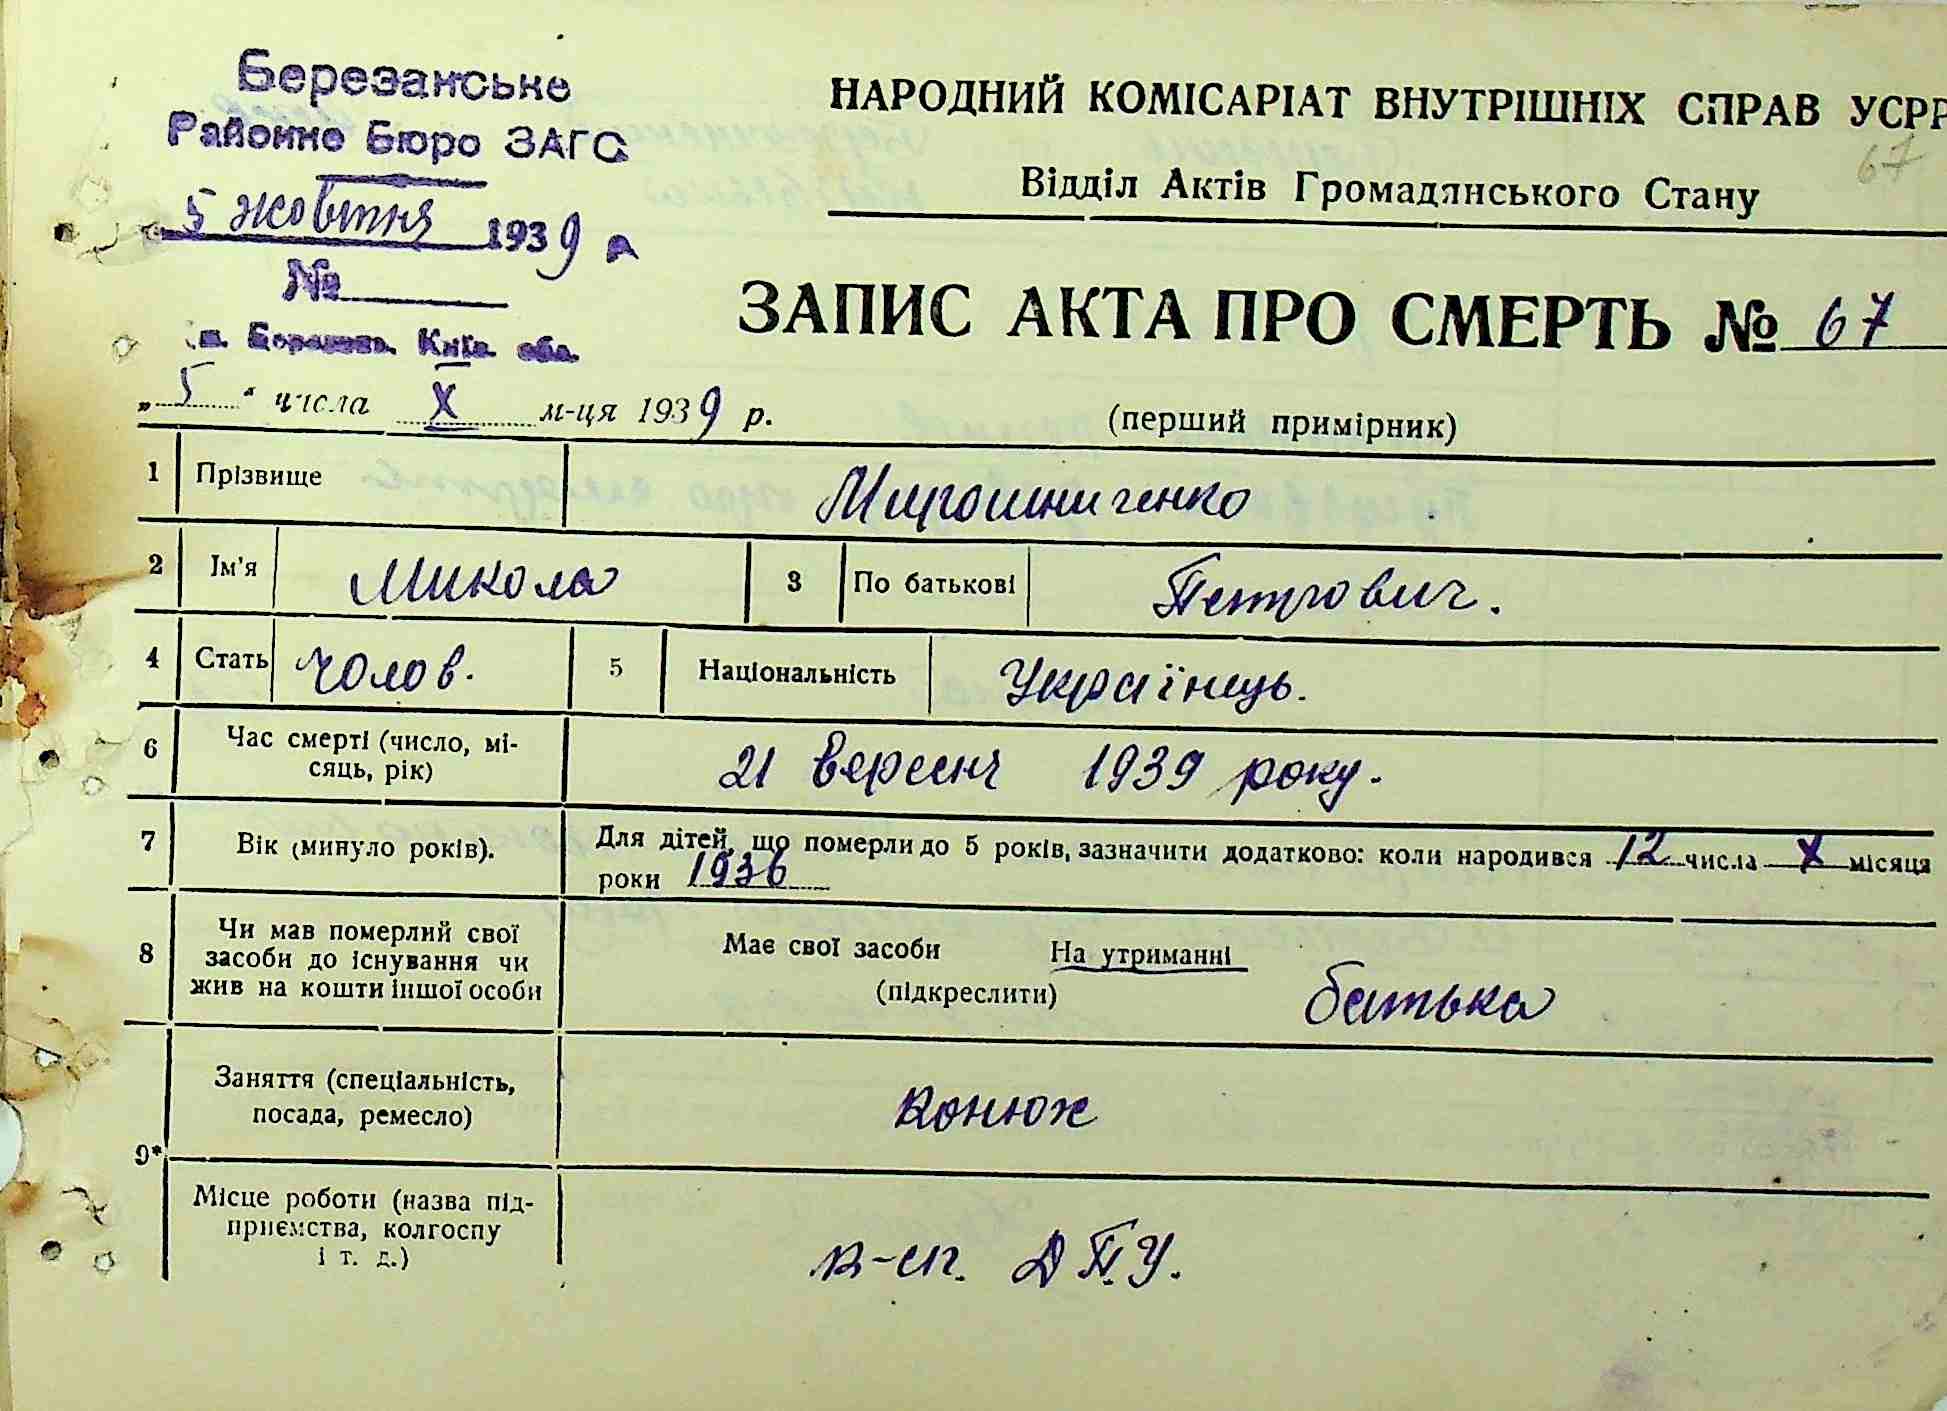 Березанське
Районне Бюро ЗАГС
5 жовтня 1939 р
№
Київ. обл.
НАРОДНИЙ КОМІСАРІАТ ВНУТРІШНІХ СПРАВ УСРР
67
Відділ Актів Громадянського Стану
ЗАПИС АКТА ПРО СМЕРТЬ № 67
„5" числа X м-ця 1939 р.
(перший примірник)
1 Прізвище Мирошниченко
2 Ім'я Микола 3 По батькові Петрович.
4 Стать чолов. 5 Національність Українець.
6 Час смерті (число, мі-
сяць, рік) 21 вересня 1939 року.
7 Вік (минуло років). Для дітей, що померли до 5 років, зазначити додатково: коли народився 12 числа X місяця
роки 1936
8 Чи мав померлий свої
засоби до існування чи
жив на кошти іншої особи
Має свої засоби На утриманні
(підкреслити) батька
9* Заняття (спеціальність,
посада, ремесло) конюх
Місце роботи (назва під-
приємства, колгоспу
і т. д.) к-сп. Д.П.У.